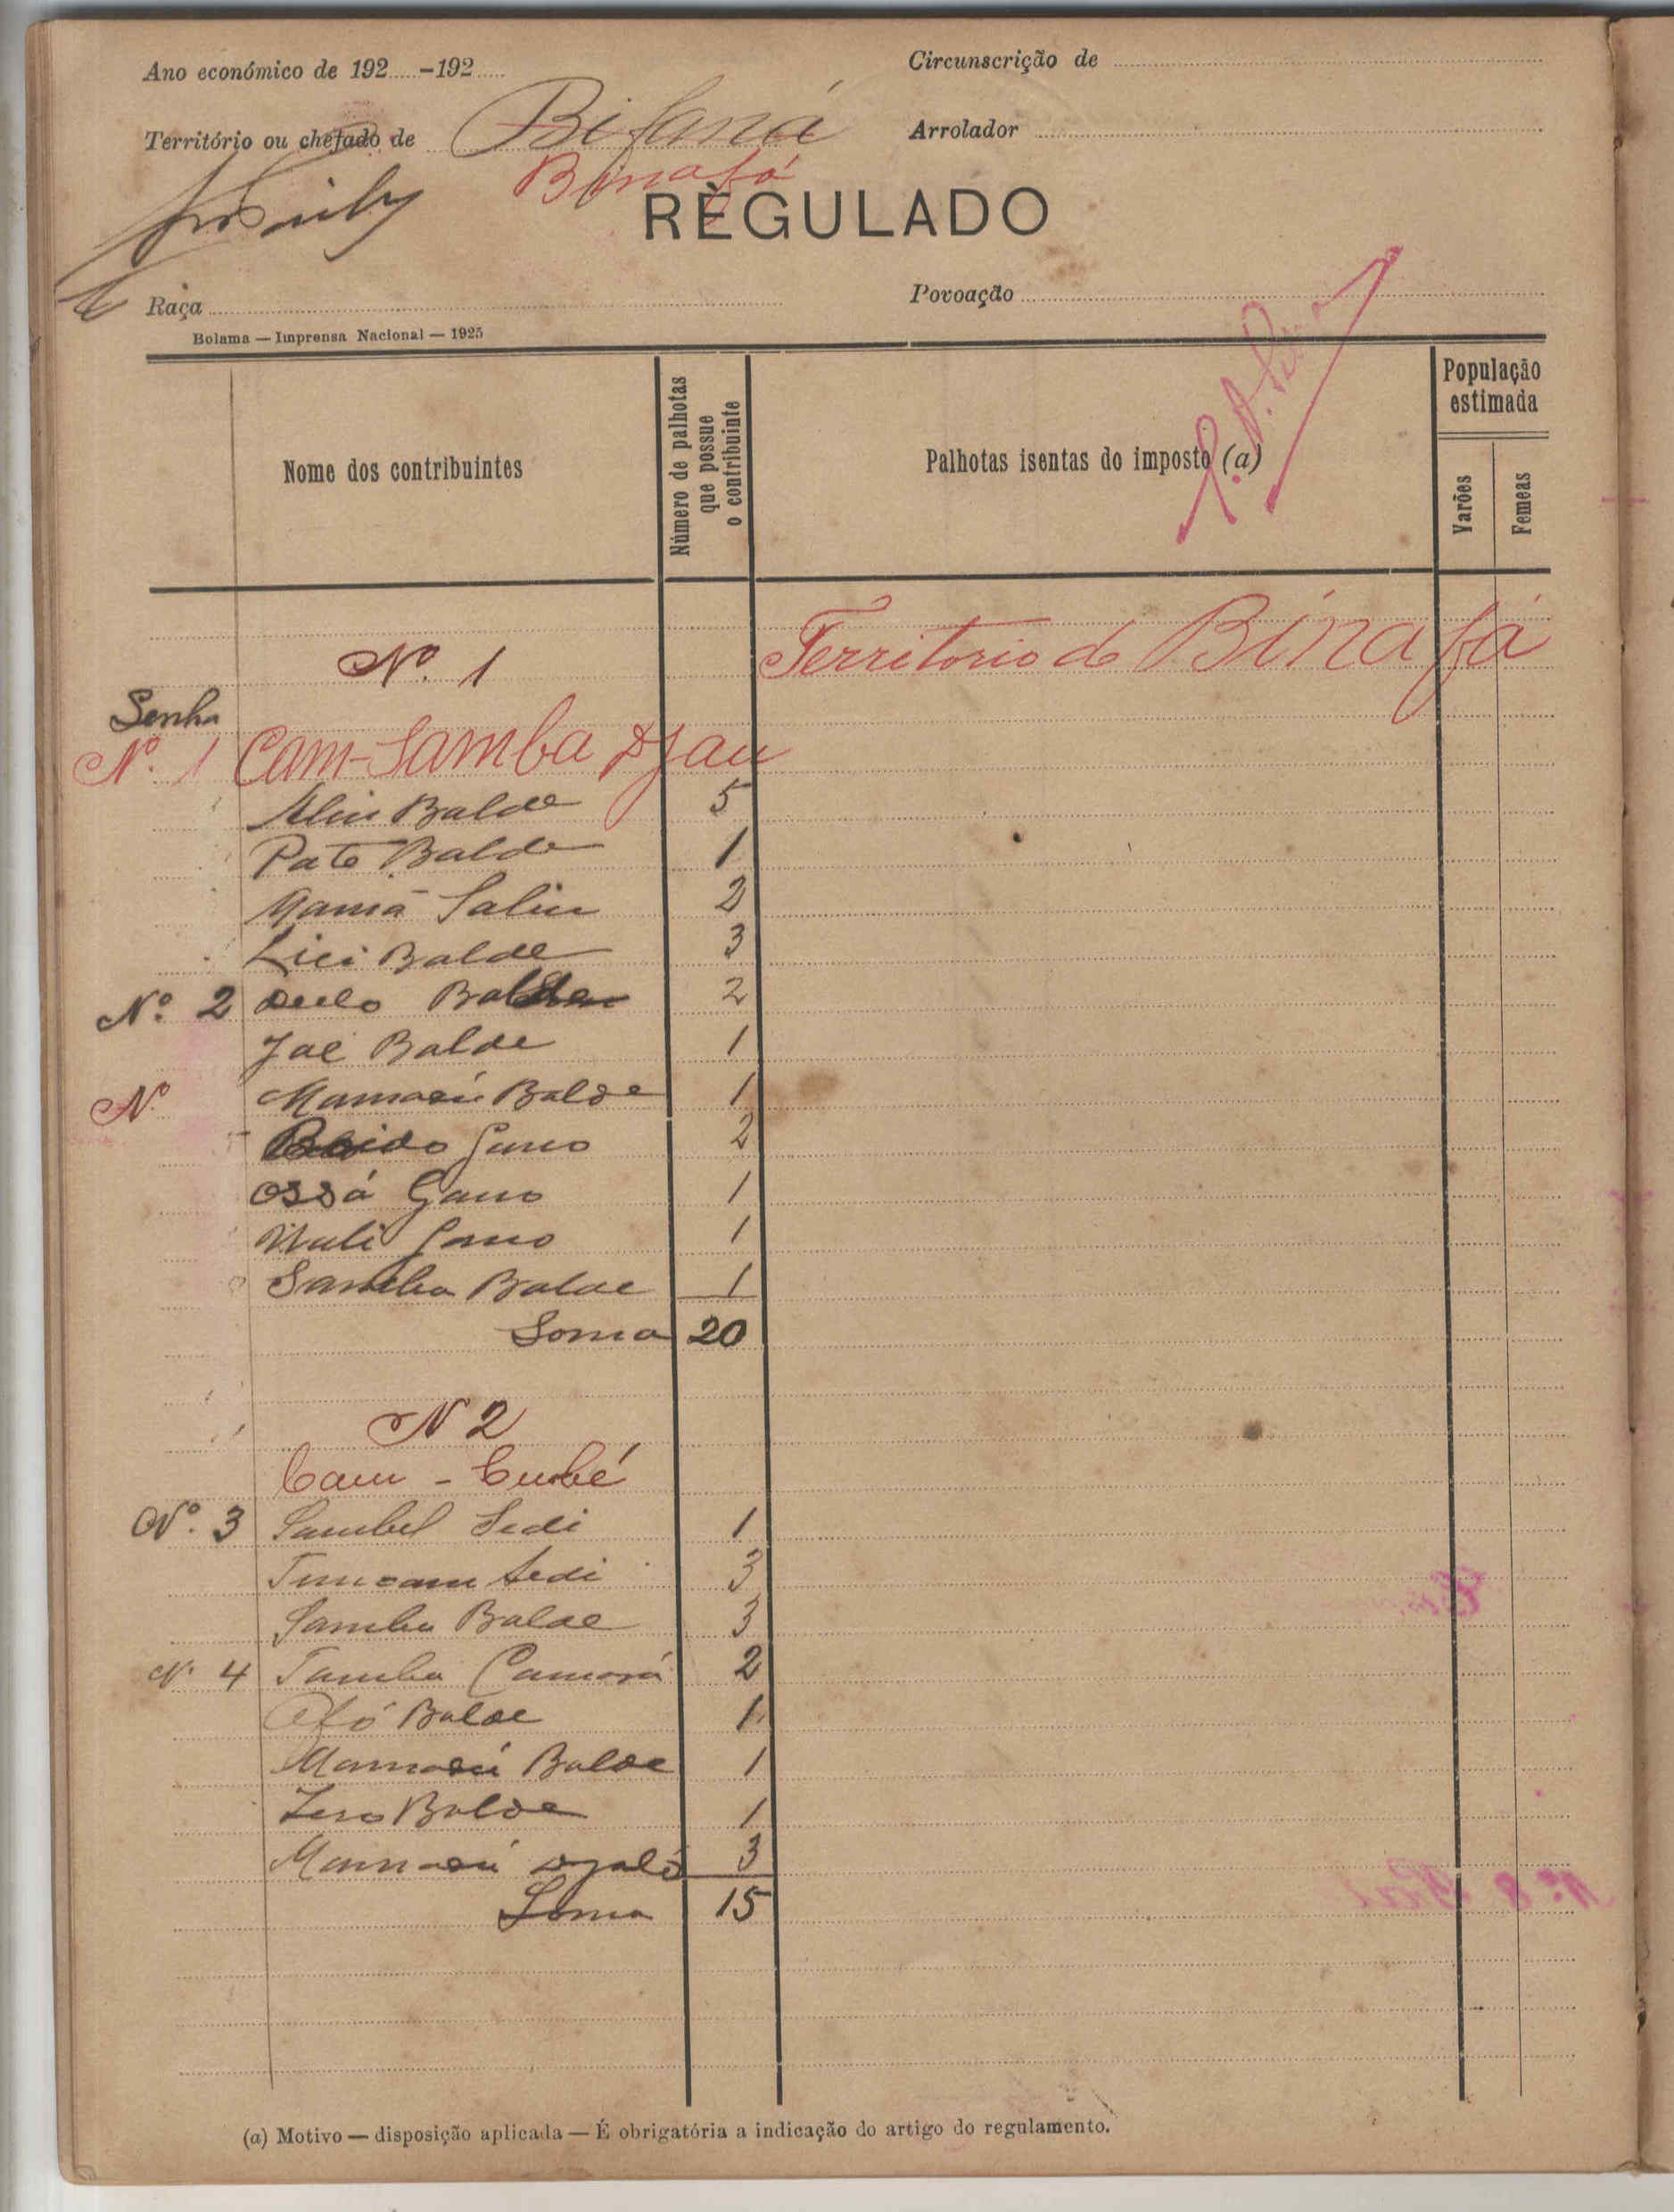 Ano económico de 192.....-192.....
Circunscrição de
Território ou chefado de Bifaná
Arrolador
Binafá
REGULADO
Raça
Povoação
Bolama — Imprensa Nacional — 1925
Nome dos contribuintes
Número de palhotas que possue o contribuinte
Palhotas isentas do imposto (a)
População estimada
Varões
Femeas
Nº 1
Territorio de Binafá
Senha
Nº 1 Cam-Samba Djau
Aliu Balde 5
Pate Balde 1
Mamá Saliu 2
Lici Balde 3
Nº 2 Balde 2
Jae Balde 1
Nº Mamadú Balde 1
Gano 2
Ossá Gano 1
Gano 1
Samba Balde 1
Soma 20
N 2
Cam - Cumbé
Nº 3 Sambel Sedi 1
Sedi 3
Samba Balde 3
Nº 4 Samba Camará 2
Balde 1
Mamadú Balde 1
Balde 1
Mamadú Djaló 3
Soma 15
(a) Motivo — disposição aplicada — É obrigatória a indicação do artigo do regulamento.